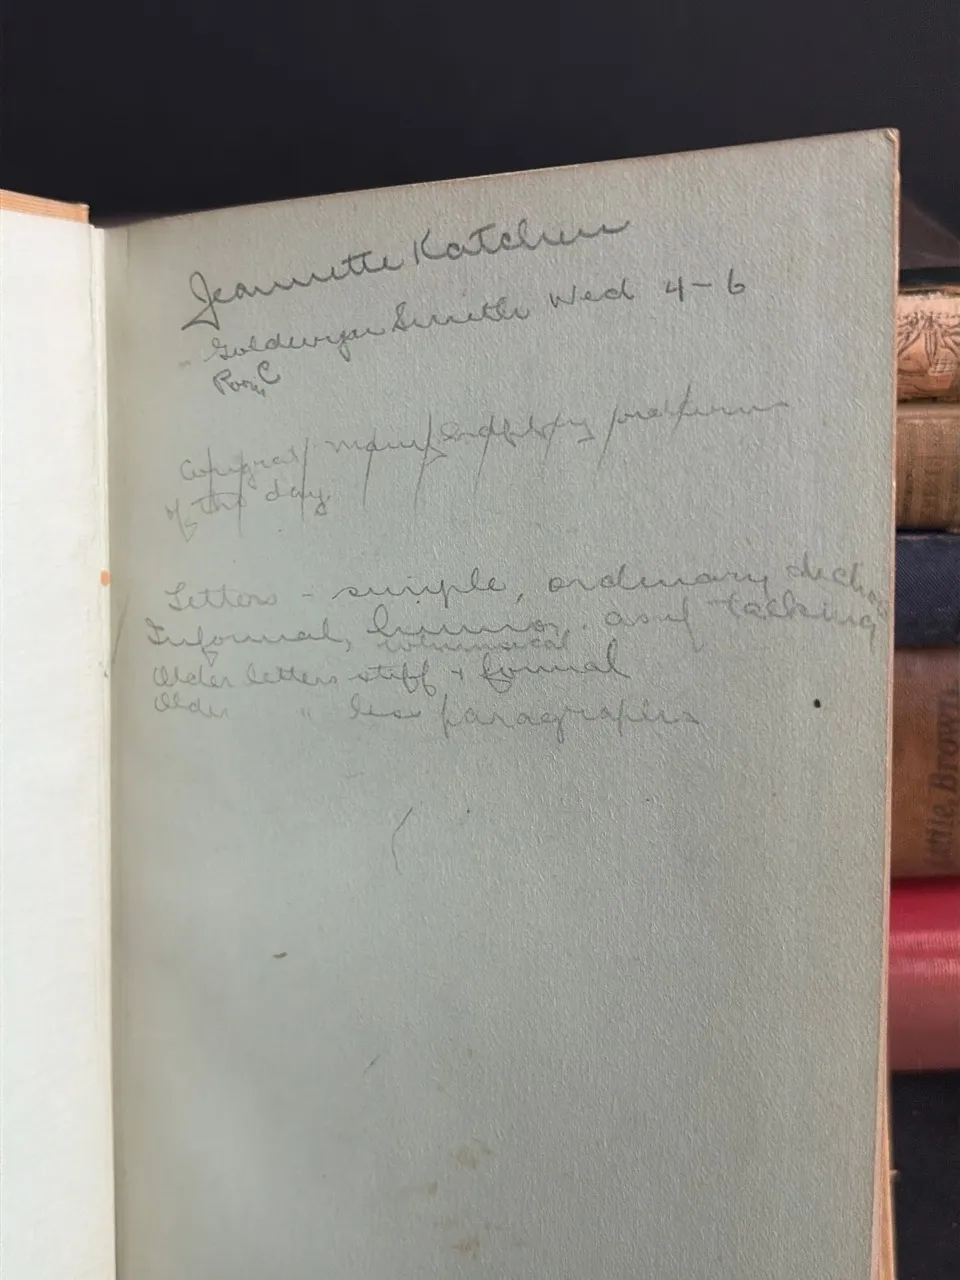 Jeannette Katchen
Goldwyn Smith Wed 4-6
Room C
of the day
Letters - simple, ordinary diction
Informal, humor. as if talking
whimsical
Older letters stiff + formal
Older " less paragraphs
Little, Brown